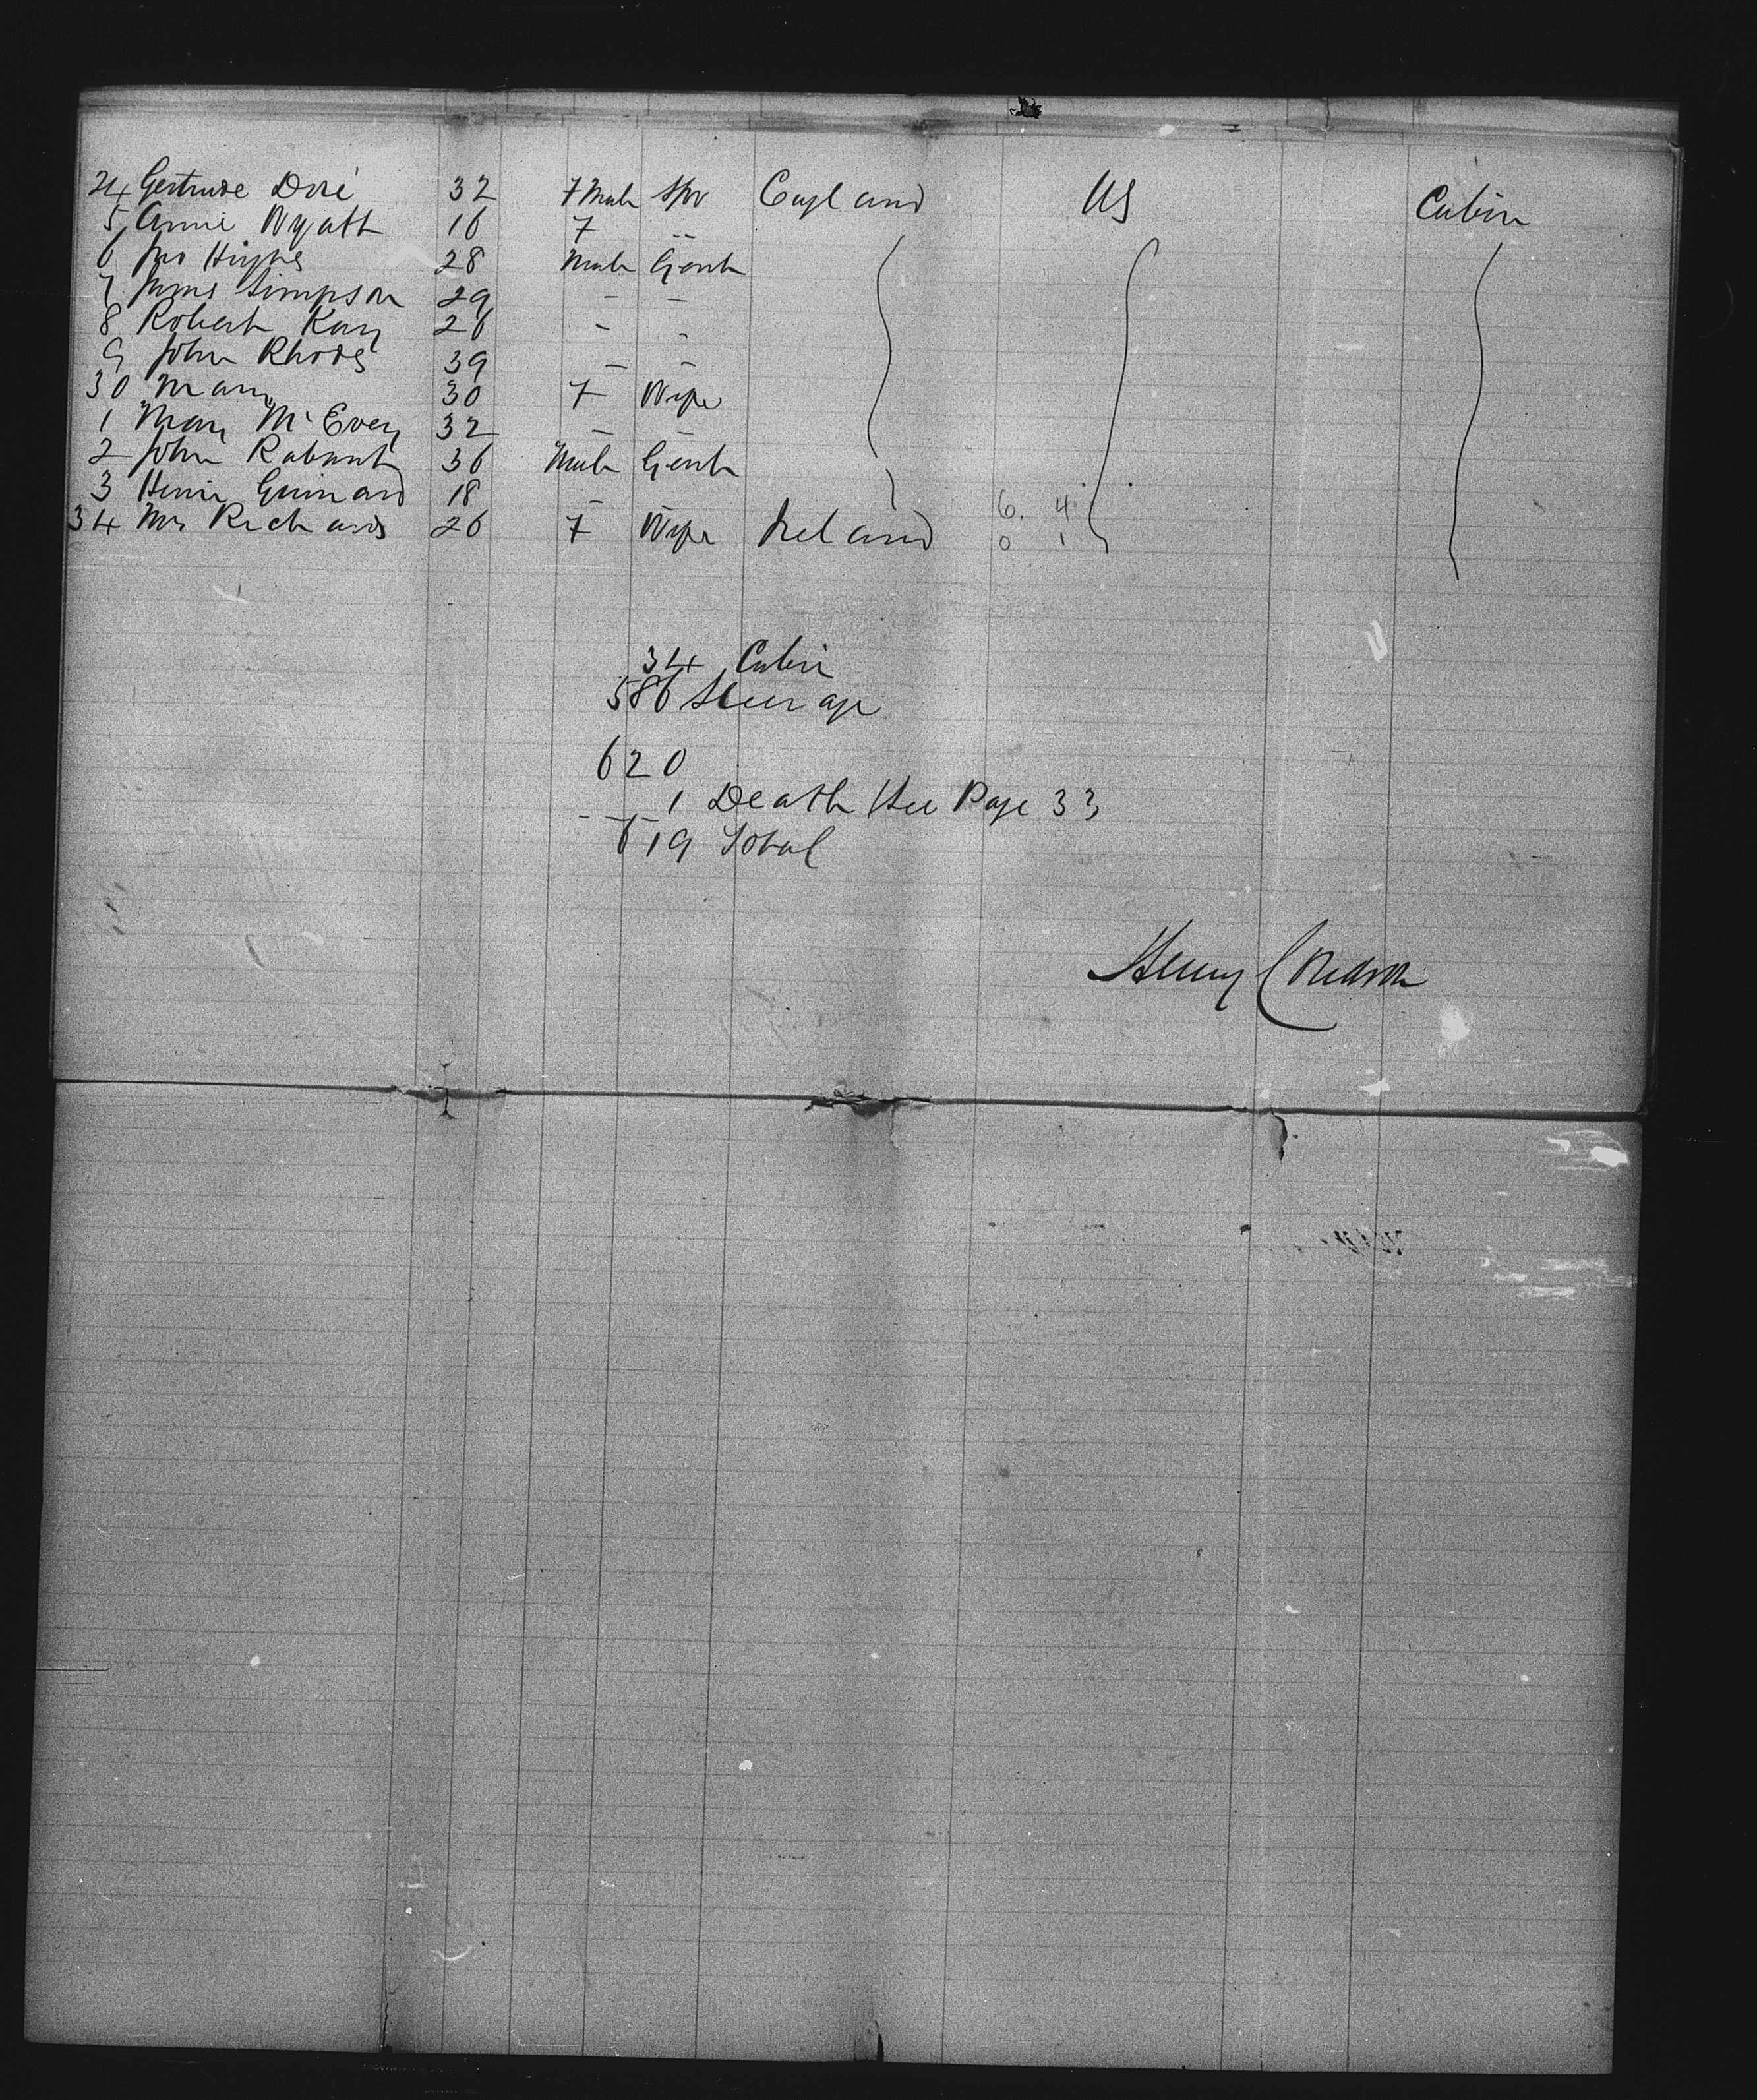 24 Gertrude Doré 32 Fmale Spr England US Cabin
5 Annie Wyatt 16 F "
6 Jno Hughes 28 Male Gent
7 James Simpson 29 - -
8 Robert Kay 26 - -
9 John Rhodes 39 - -
30 Mary 30 F Wife
1 Mary McEvey 32 - -
2 John Rabant 36 Male Gent
3 Henri Guinard 18 -
34 Mrs Richards 26 F Wife Ireland
6. 4
0 1
34 Cabin
586 Steerage
620
1 Death See Page 33
619 Total
Henry